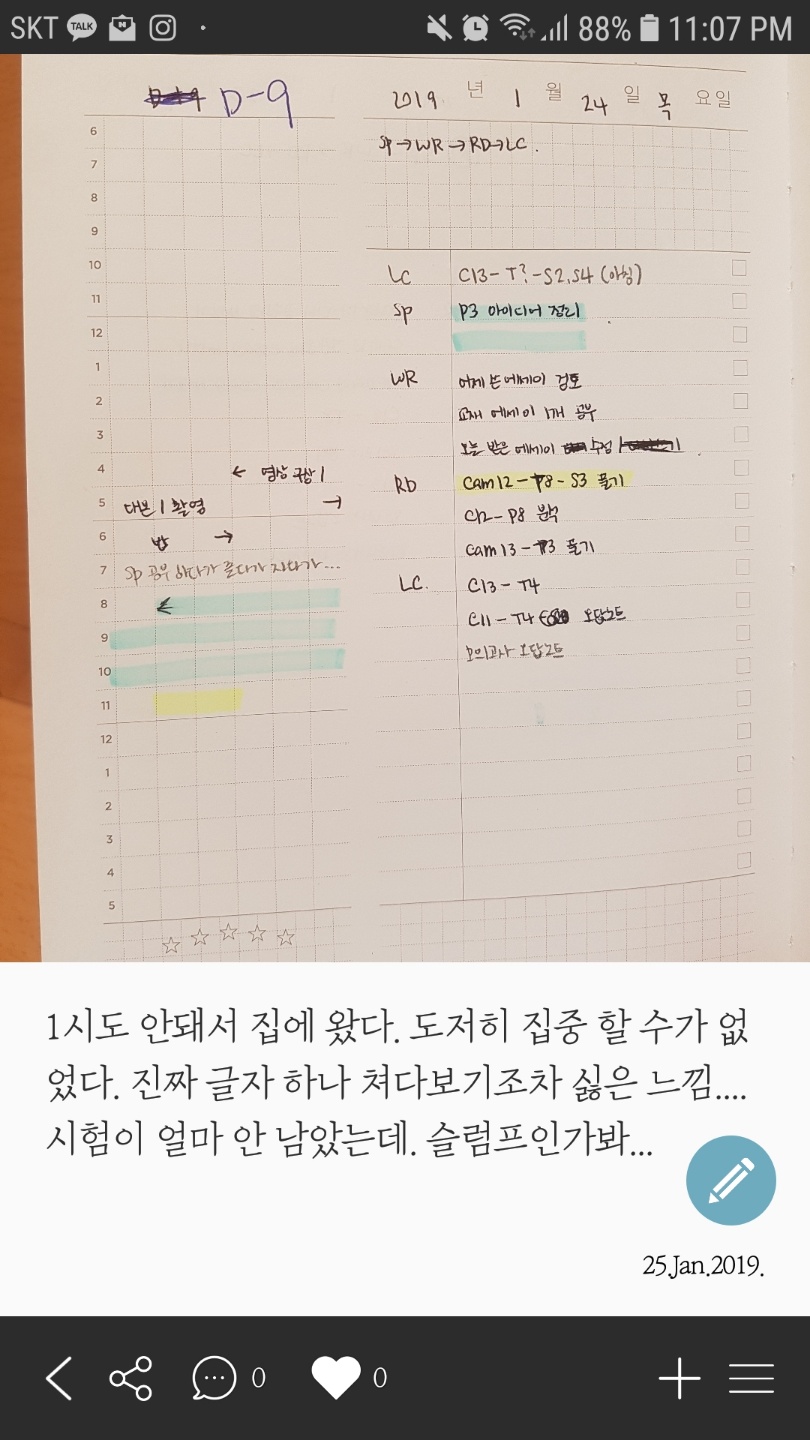 SKT TALK N 88% 11:07 PM
D-9
2019 년 1 월 24 일 목 요일
SP→WR→RD→LC.
6
7
8
9
10
11
12
1
2
3
4 ← 영상 구상 |
5 대본 | 촬영 →
6 밥 →
7 SP 공부 하다가 졸다가 자다가...
8 ←
9
10
11
12
1
2
3
4
5
LC C13-T?-S2,S4 (아침)
SP P3 아이디어 정리
WR 어제 쓴 에세이 검토
교재 에세이 1개 공부
오늘 받은 에세이 수정
RD Cam12-P8-S3 풀기
C12-P8 분석
Cam 13-P3 풀기
LC. C13-T4
C11-T4 오답노트
모의고사 오답노트
1시도 안돼서 집에 왔다. 도저히 집중 할 수가 없
었다. 진짜 글자 하나 쳐다보기조차 싫은 느낌....
시험이 얼마 안 남았는데. 슬럼프인가봐...
25.Jan.2019.
0 0